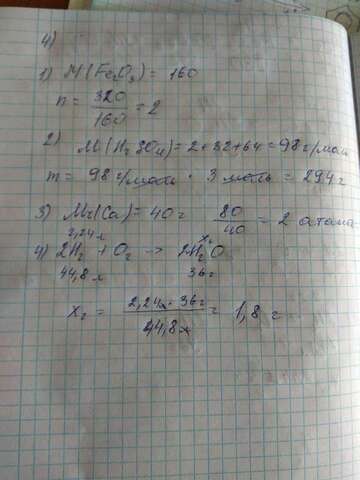 4)
1) M(Fe₂O₃) = 160
n = 320/160 = 2
2) M(H₂SO₄) = 2+32+64 = 98 г/моль
m = 98 г/моль · 3 моль = 294 г
3) Mr(Ca) = 40 г 80/40 = 2 атома
2,24 л x г
4) 2H₂ + O₂ → 2H₂O
44,8 л 36 г
X₂ = 2,24 л · 36 г / 44,8 л = 1,8 г